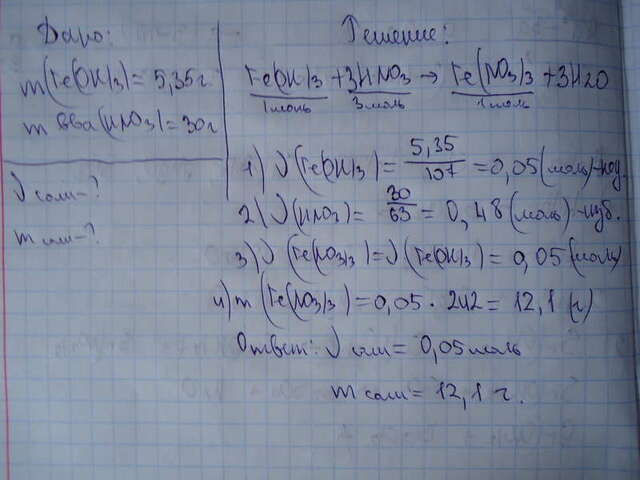 Дано:
m(Fe(OH)3) = 5,35г
m вва(HNO3) = 30г
ν соли-?
m соли-?
Решение:
Fe(OH)3 + 3HNO3 → Fe(NO3)3 + 3H2O
1 моль 3 моль 1 моль
1) ν(Fe(OH)3) = 5,35/107 = 0,05 (моль)-нед.
2) ν(HNO3) = 30/63 = 0,48 (моль)-изб.
3) ν(Fe(NO3)3) = ν(Fe(OH)3) = 0,05 (моль)
4) m(Fe(NO3)3) = 0,05 · 242 = 12,1 (г)
Ответ: ν соли = 0,05 моль
m соли = 12,1 г.